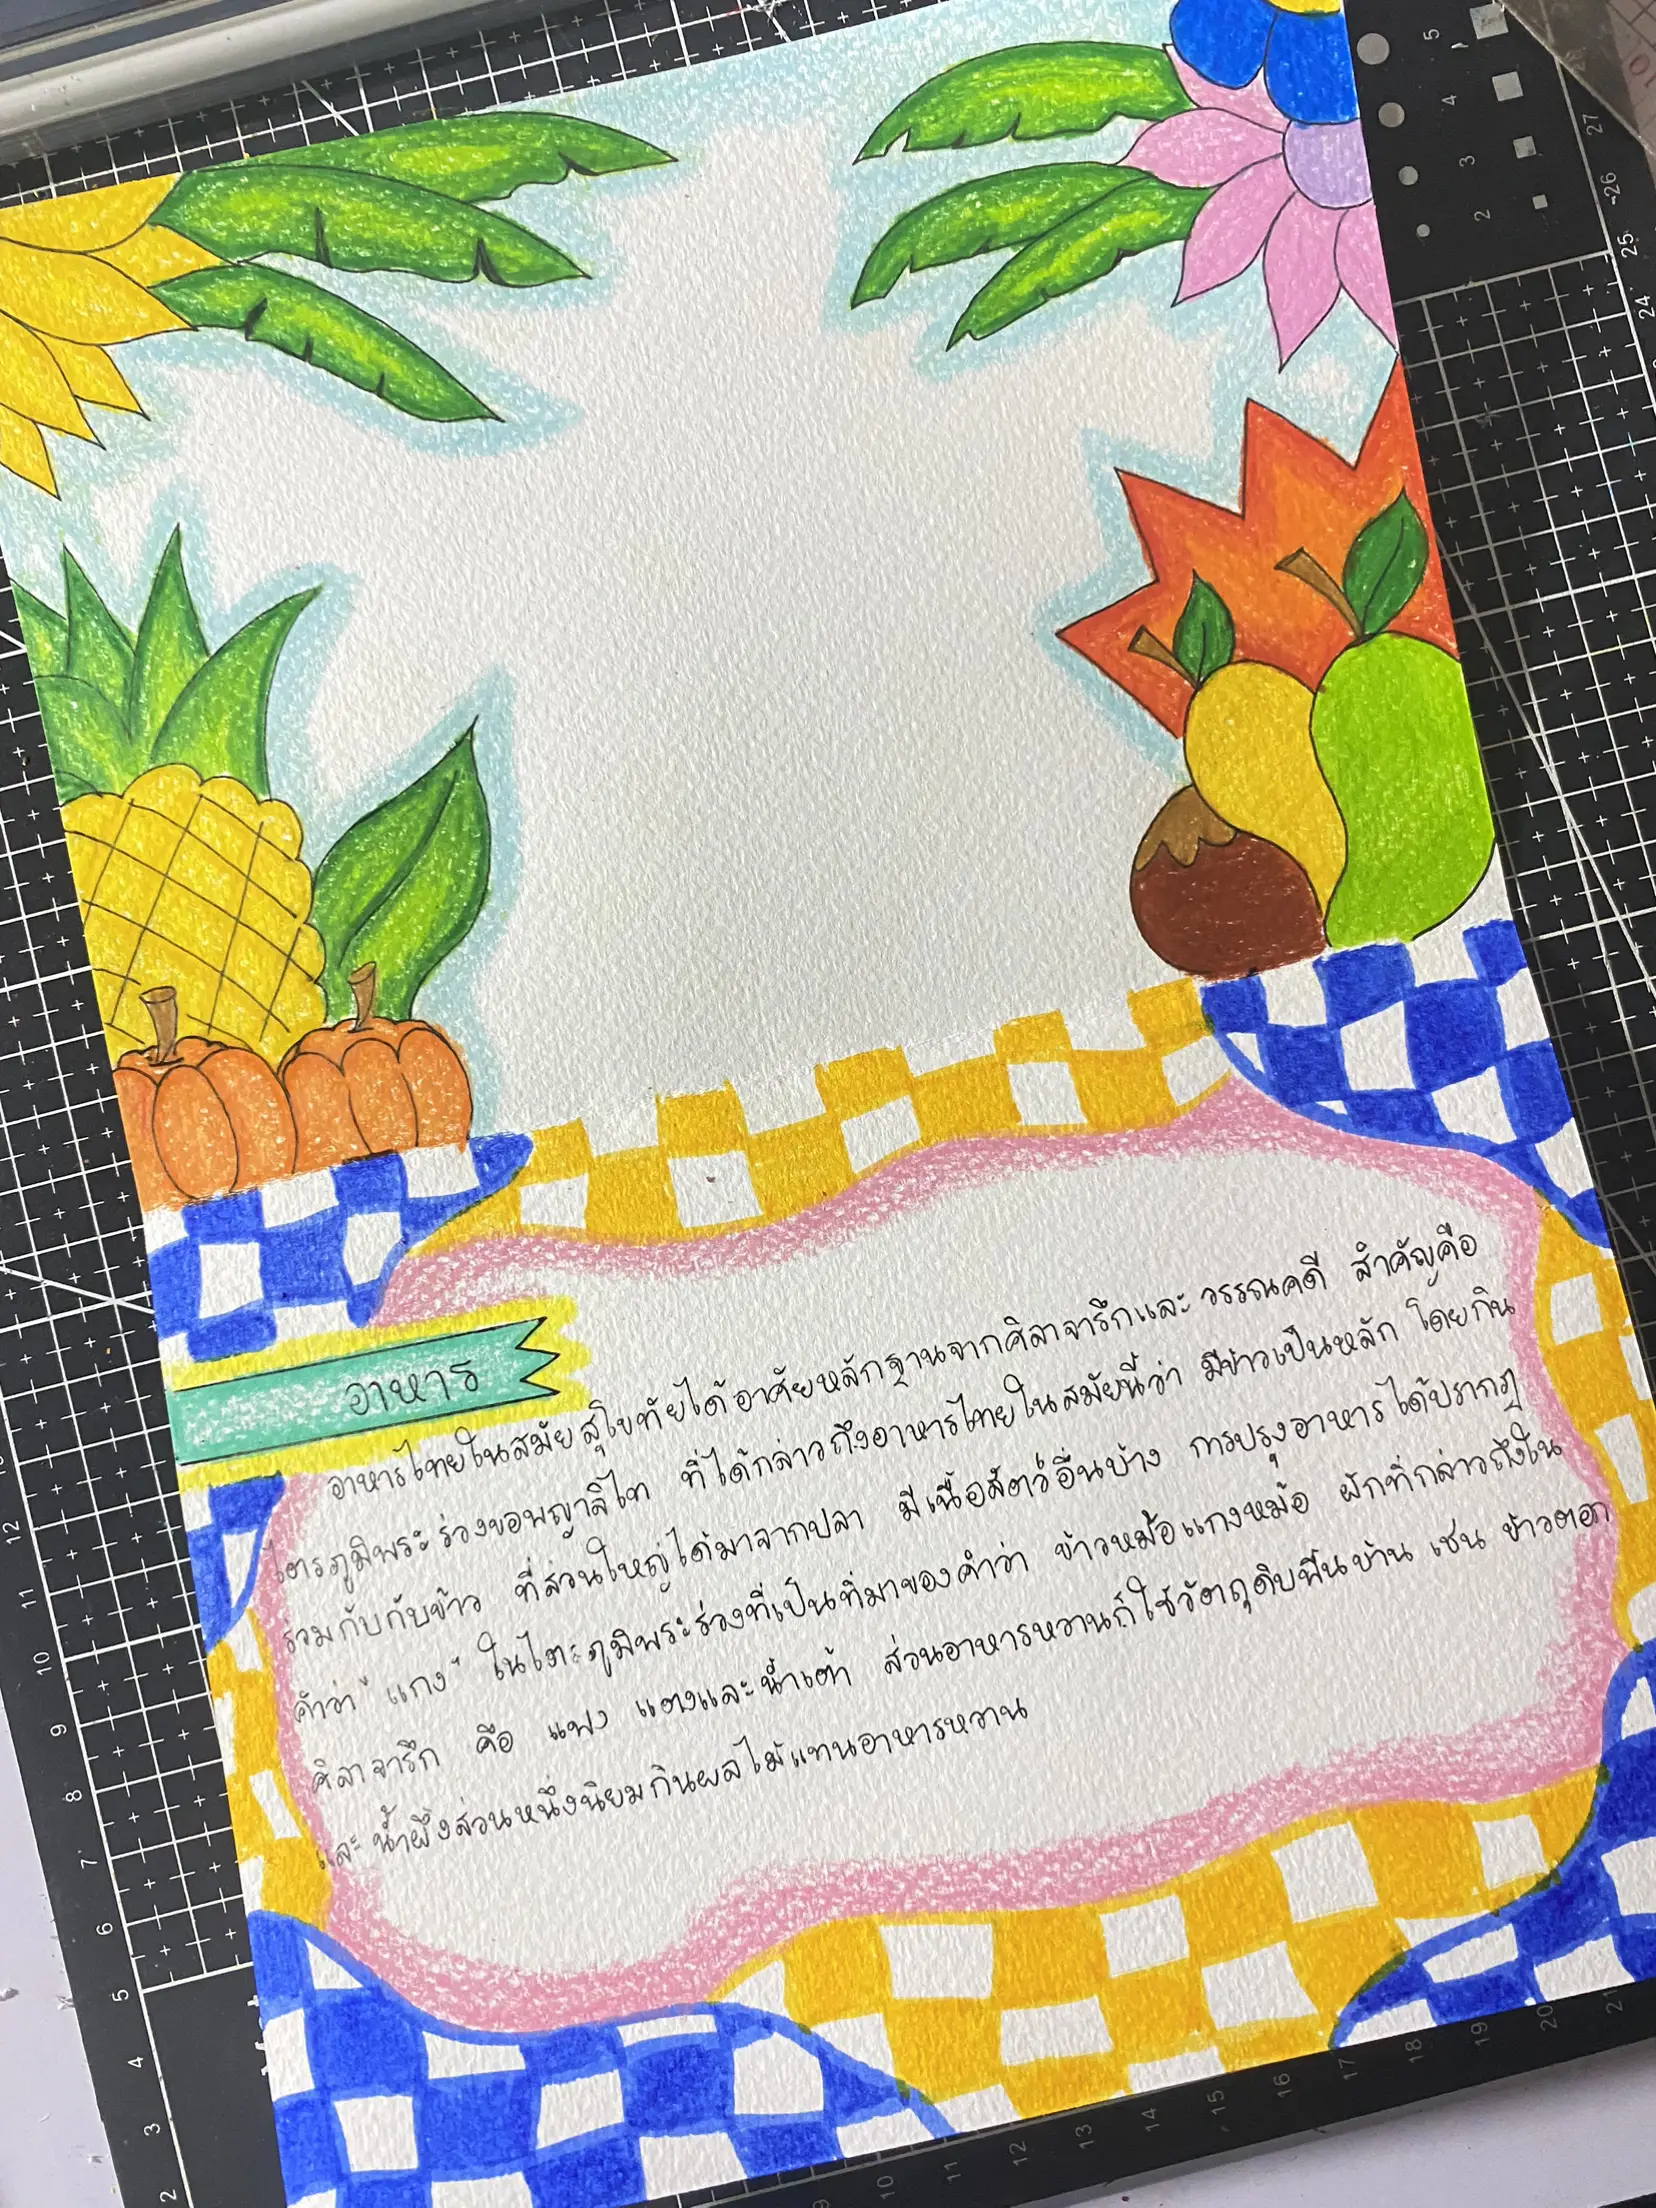 อาหาร
อาหารไทยในสมัยสุโขทัยได้อาศัยหลักฐานจากศิลาจารึกและวรรณคดี สำคัญคือ
ไตรภูมิพระร่วงของพญาลิไท ที่ได้กล่าวถึงอาหารไทยในสมัยนี้ว่า มีข้าวเป็นหลัก โดยกิน
ร่วมกับกับข้าว ที่ส่วนใหญ่ได้มาจากปลา มีเนื้อสัตว์อื่นบ้าง การปรุงอาหารได้ปรากฏ
คำว่า "แกง" ในไตรภูมิพระร่วงที่เป็นที่มาของคำว่า ข้าวหม้อแกงหม้อ ผักที่กล่าวถึงใน
ศิลาจารึก คือ แฟง แตงและน้ำเต้า ส่วนอาหารหวานก็ใช้วัตถุดิบพื้นบ้าน เช่น ข้าวตอก
และน้ำผึ้งส่วนหนึ่งนิยมกินผลไม้แทนอาหารหวาน
5
4
3
2
27
26
25
24
12
11
10
9
8
7
6
5
4
3
2
10
11
12
13
14
15
16
17
18
19
20
21